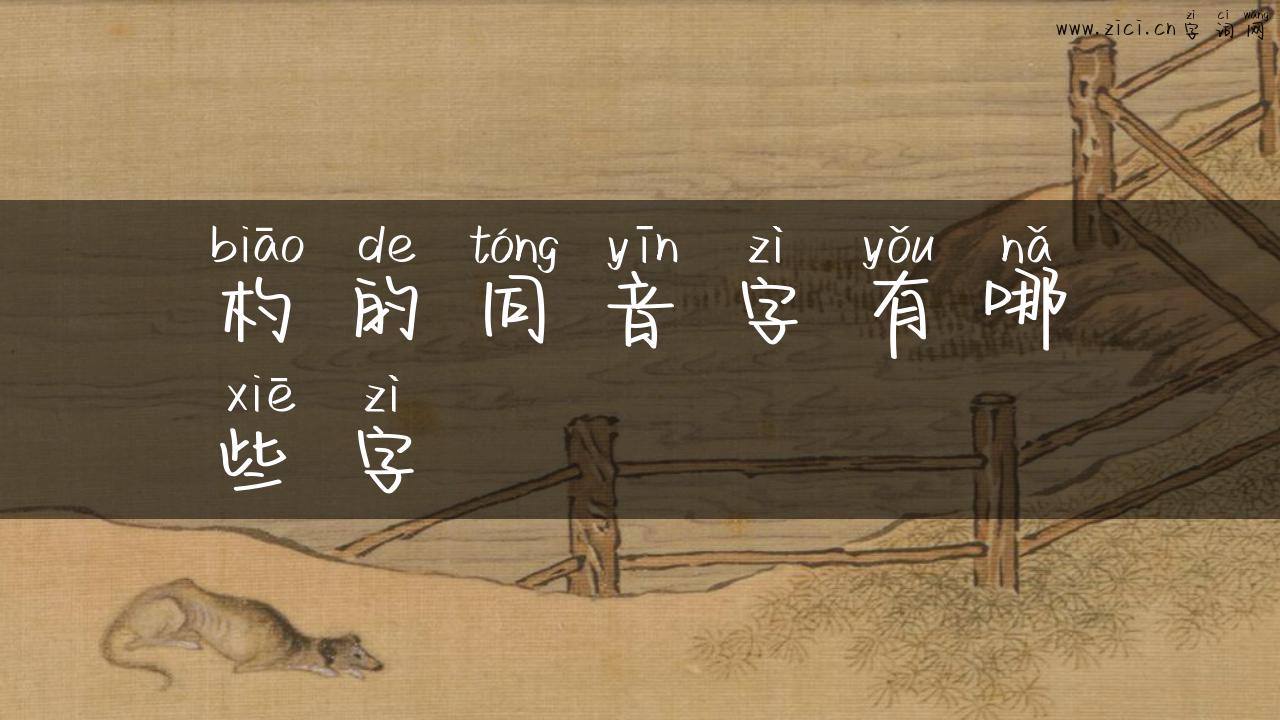 zì cí wǎng
www.zici.cn 字词网
biāo de tóng yīn zì yǒu nǎ
杓的同音字有哪
xiē zì
些字